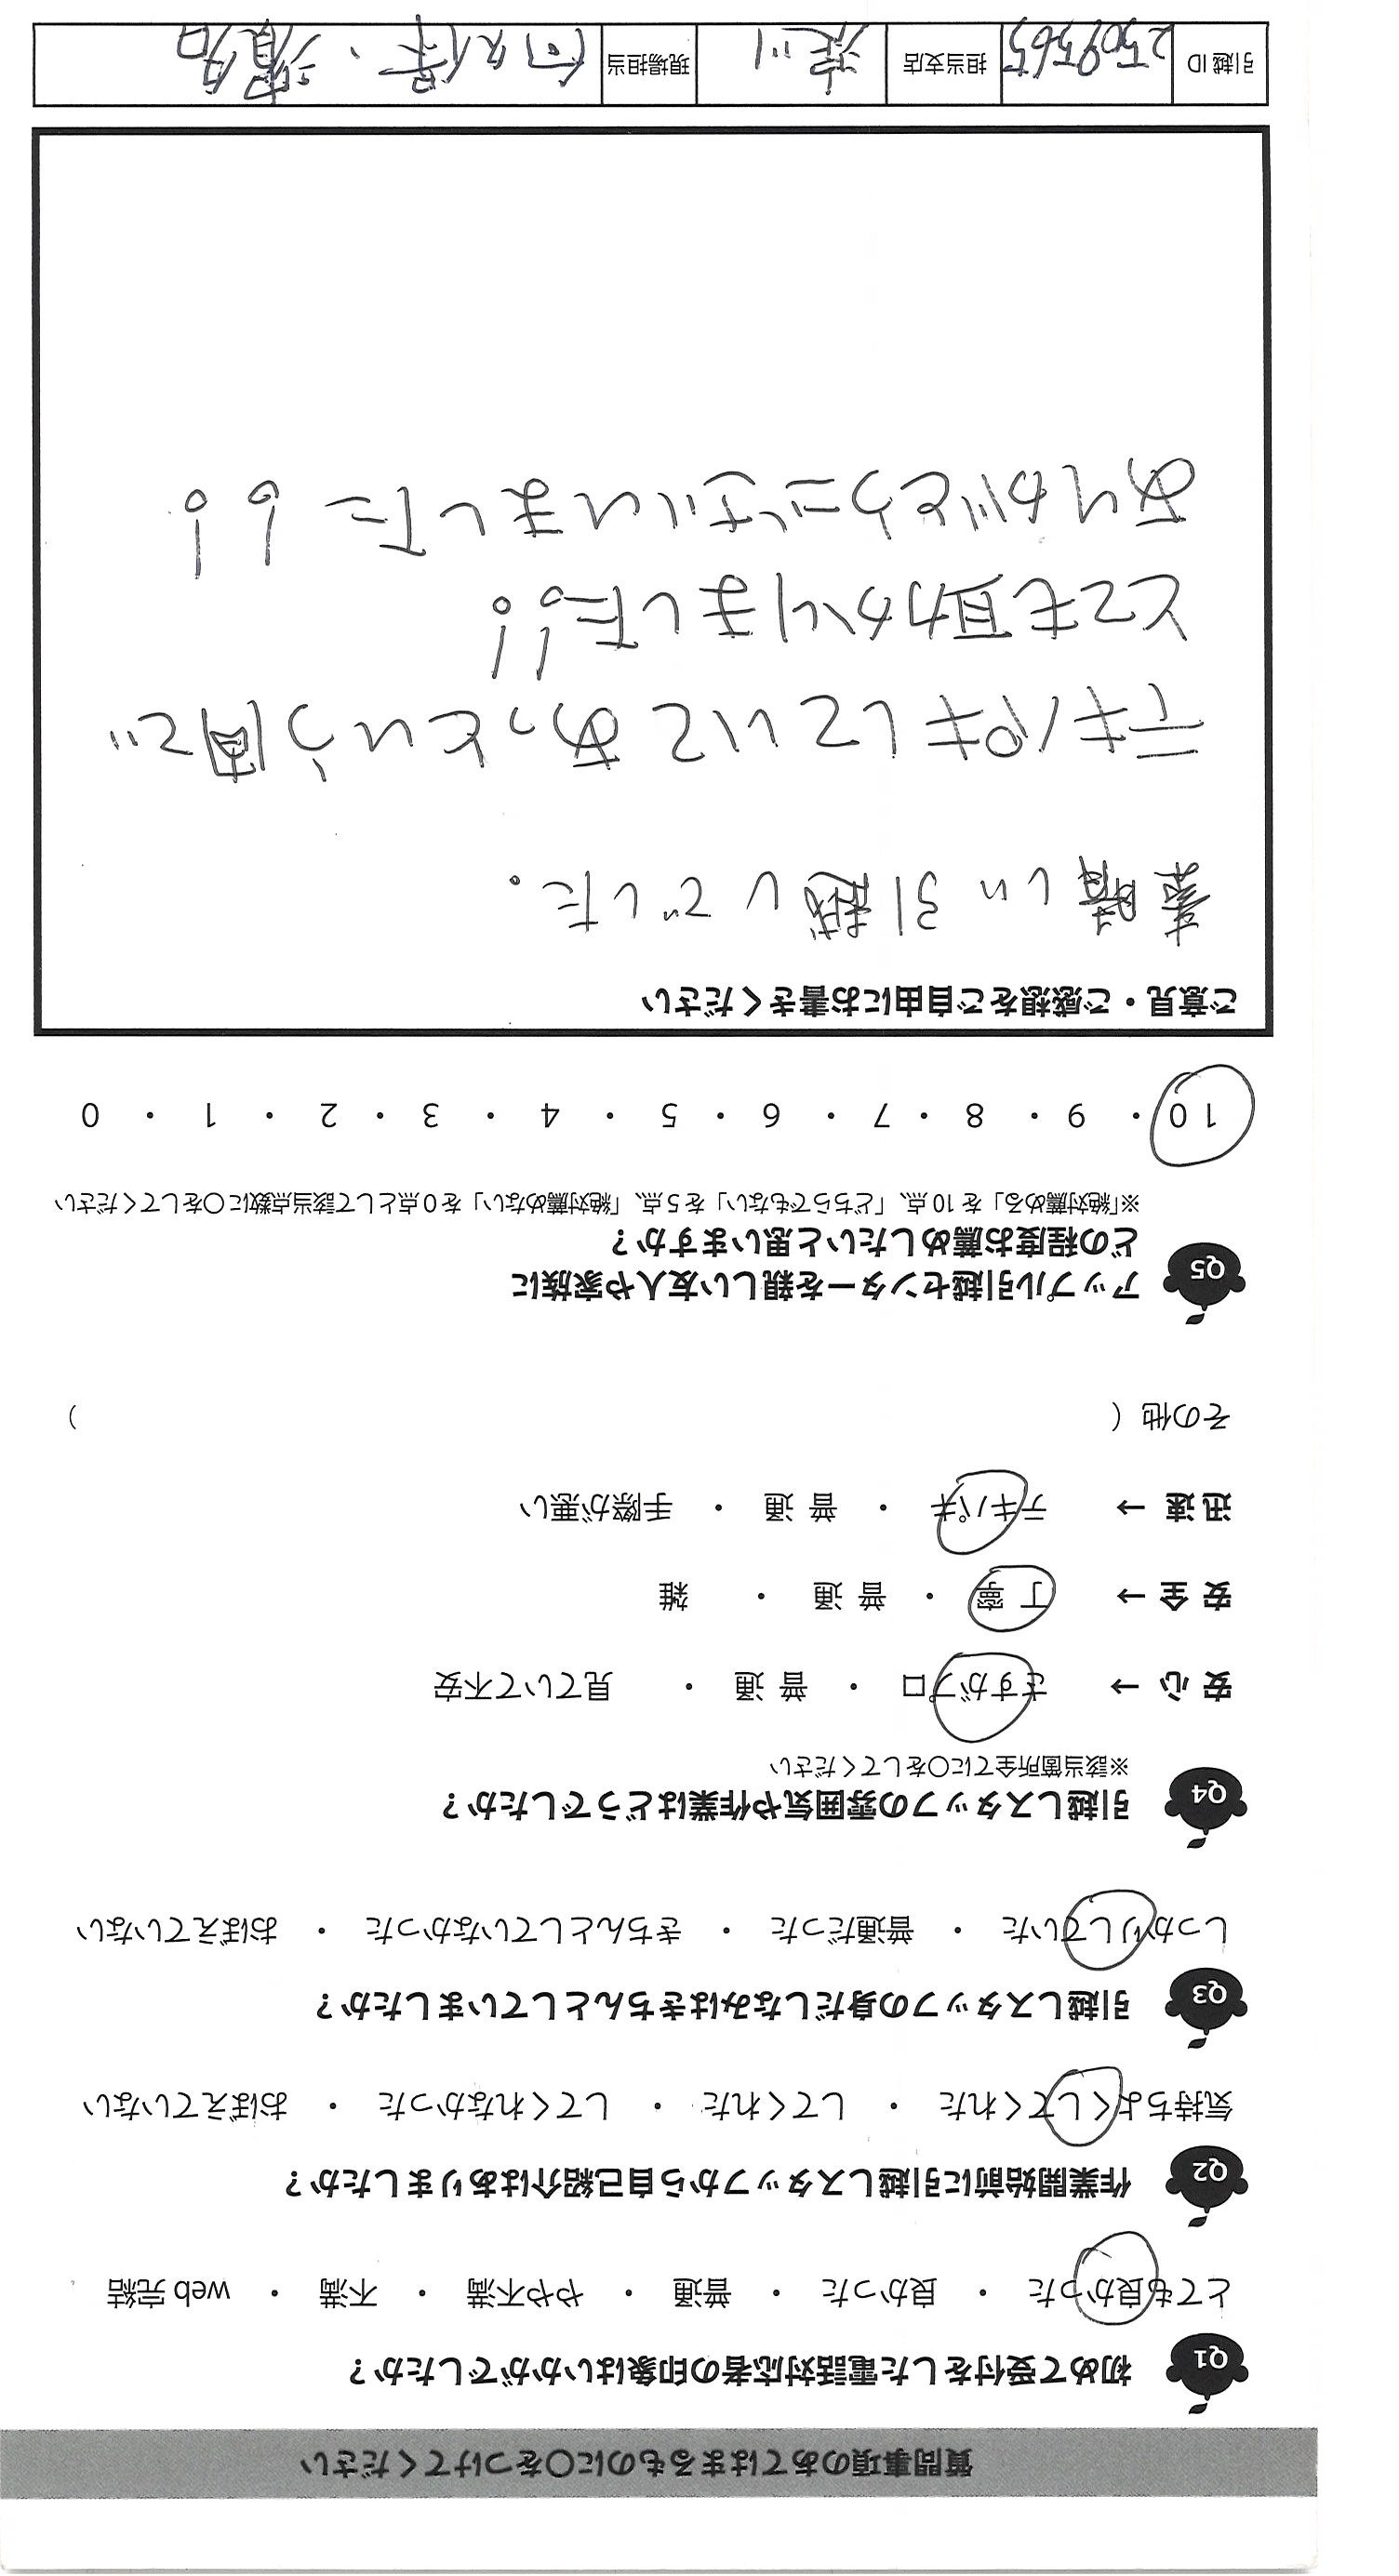 質問事項のあてはまるものに〇をつけてください
Q1 初めて受付をした電話対応者の印象はいかがでしたか？
とても良かった ・ 良かった ・ 普通 ・ やや不満 ・ 不満 ・ web 完結
Q2 作業開始前に引越しスタッフから自己紹介はありましたか？
気持ちよくしてくれた ・ してくれた ・ してくれなかった ・ おぼえていない
Q3 引越しスタッフの身だしなみはきちんとしていましたか？
しっかりしていた ・ 普通だった ・ きちんとしていなかった ・ おぼえていない
Q4 引越しスタッフの雰囲気や作業はどうでしたか？
※該当箇所全てに〇をしてください
安 心 → さすがプロ ・ 普 通 ・ 見ていて不安
安 全 → 丁 寧 ・ 普 通 ・ 雑
迅 速 → テキパキ ・ 普 通 ・ 手際が悪い
その他（ ）
Q5 アップル引越センターを親しい友人や家族に
どの程度お薦めしたいと思いますか？
※「絶対薦める」を 10 点、「どちらでもない」を 5 点、「絶対薦めない」を 0 点として該当点数に〇をしてください
10 ・ 9 ・ 8 ・ 7 ・ 6 ・ 5 ・ 4 ・ 3 ・ 2 ・ 1 ・ 0
ご意見・ご感想をご自由にお書きください
素晴しい引越しでした.
テキパキしていて あっという間で
とても助かりました!!
ありがとうございました!!
引越 ID 2509565 担当支店 淀川 現場担当